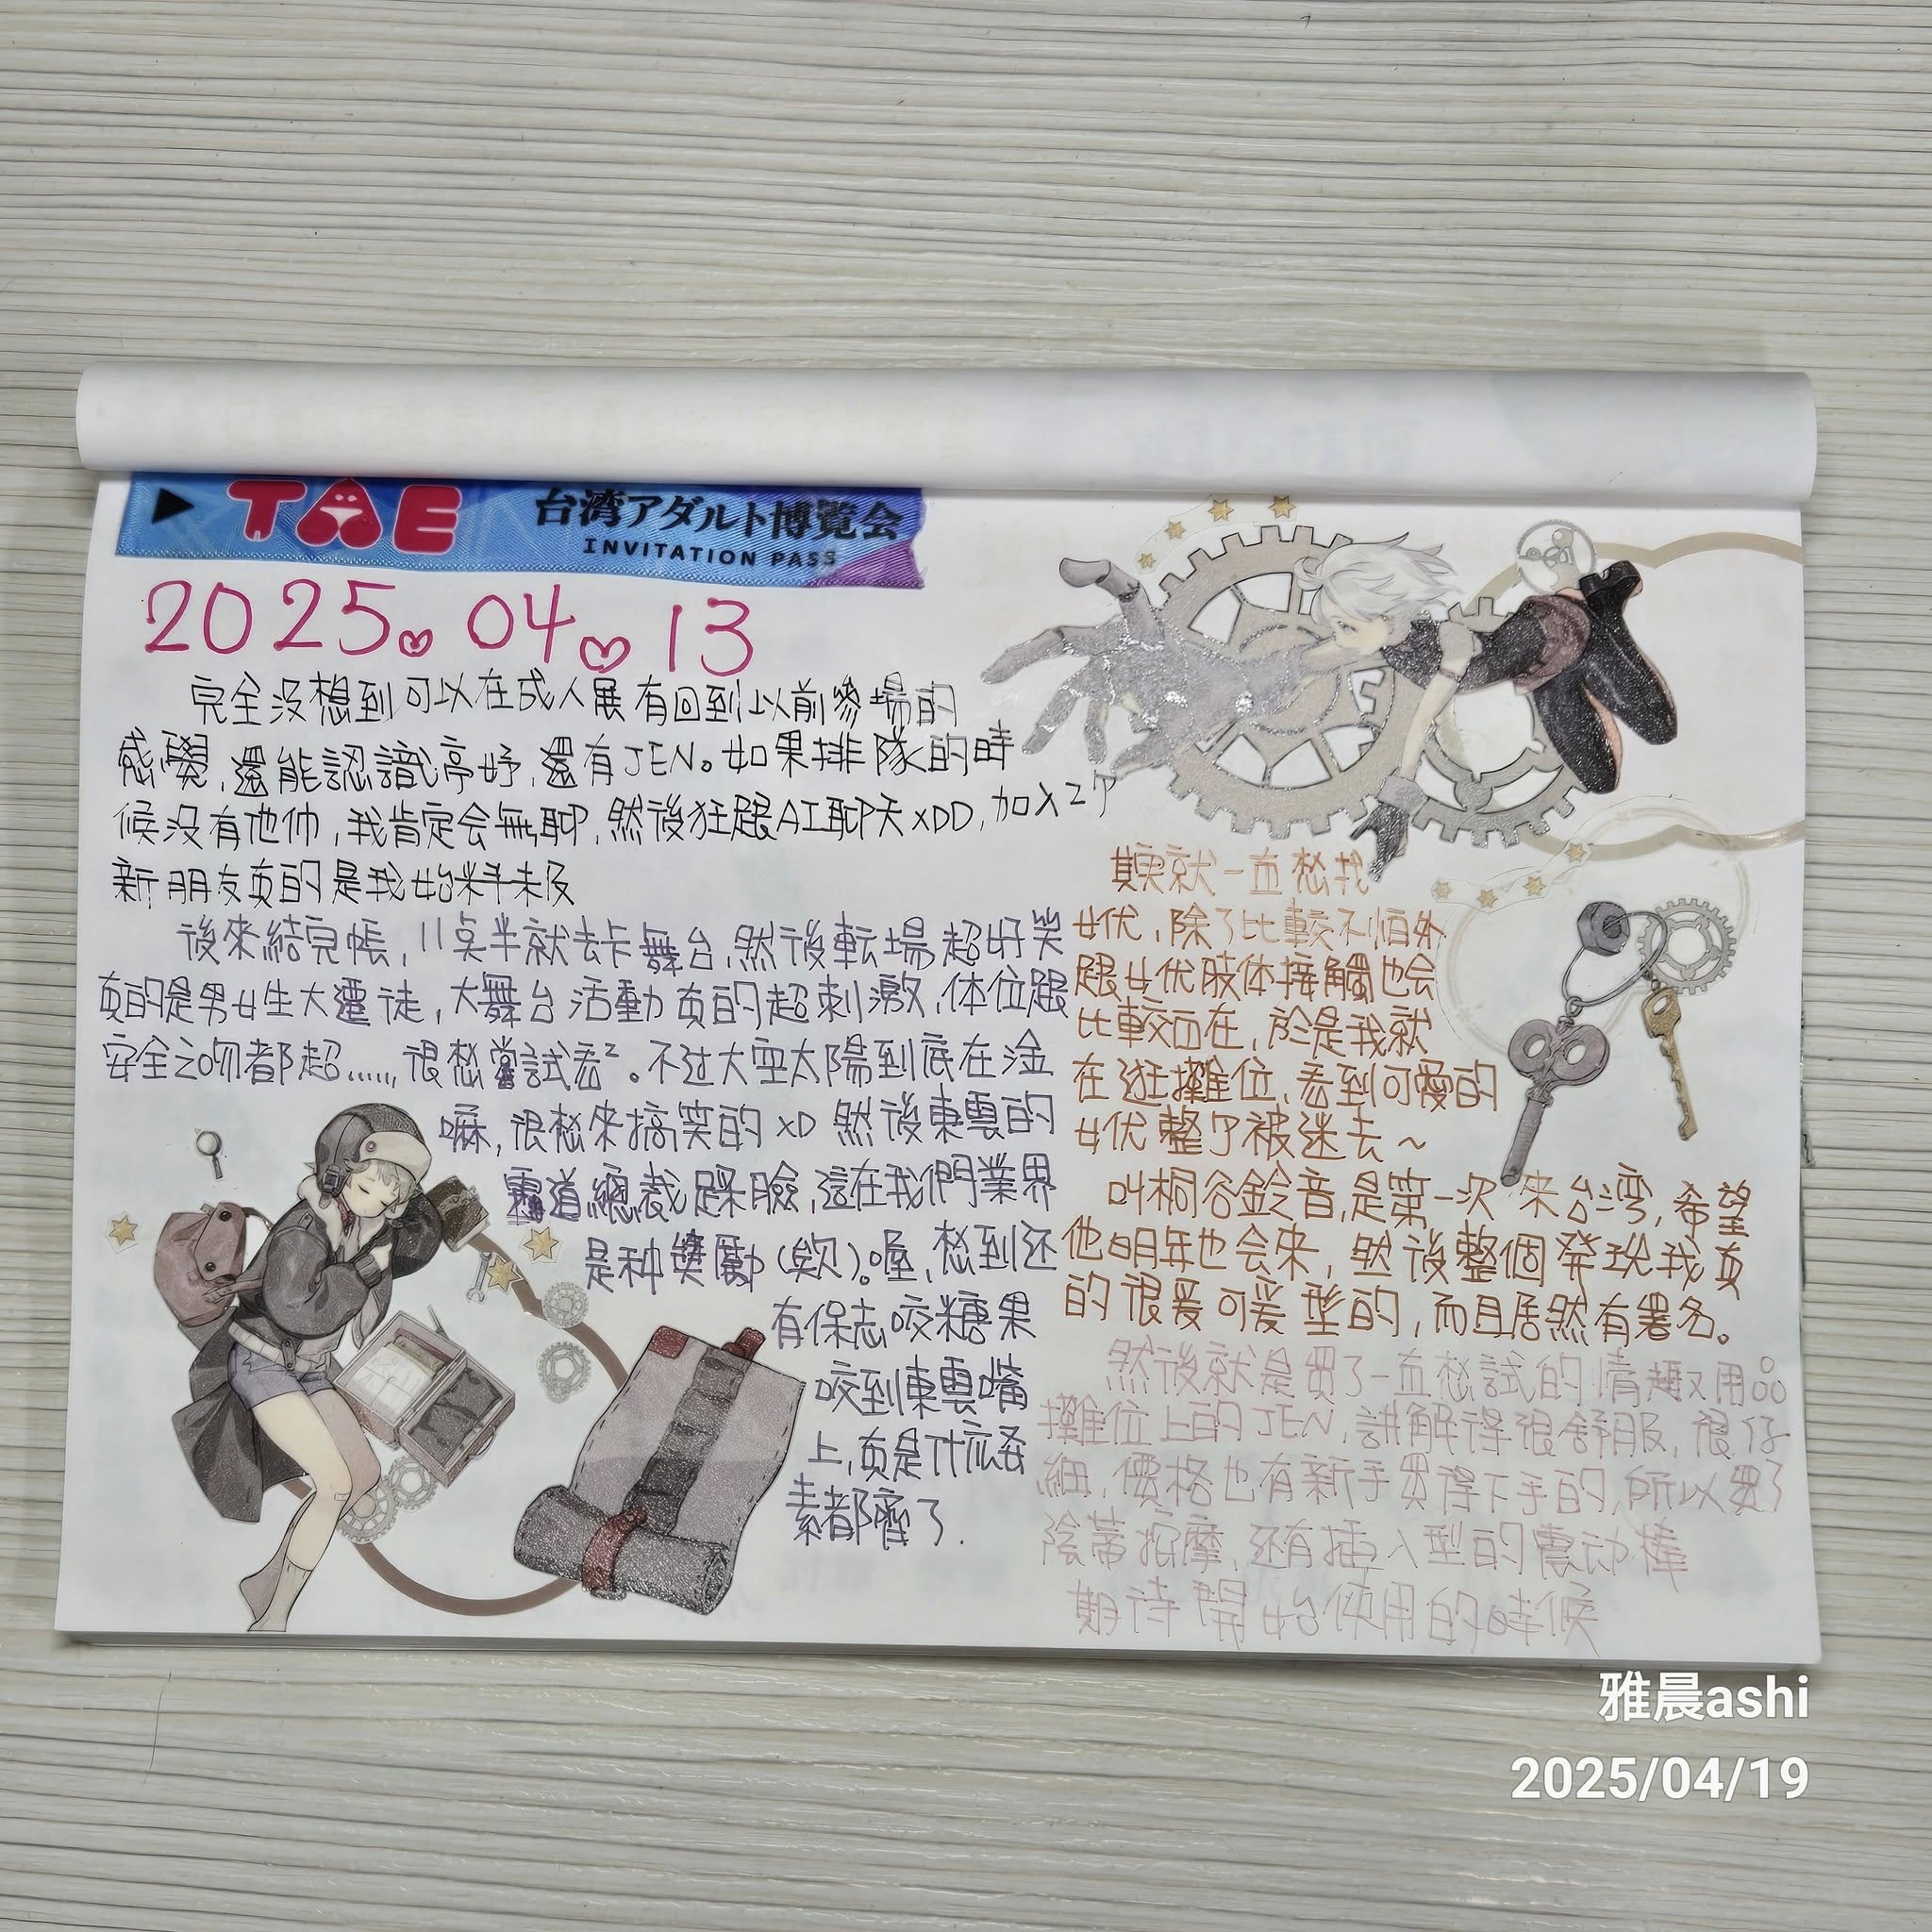 TAE 台湾アダルト博覧会
INVITATION PASS
2025.04.13
完全沒想到可以在成人展有回到以前參場的
感覺,還能認識亭妤,還有JEN。如果排隊的時
候沒有他們,我肯定会無聊,然後狂跟AI聊天XDD,加入2个
新朋友真的是我始料未及
後來結完帳,11点半就去卡舞台,然後転場超好笑
真的是男女生大遷徒,大舞台活動真的超刺激,体位跟
安全之吻都超......,很想嘗試看²。不过大空太陽到底在淦
嘛,很想来搞笑的XD 然後東雲的
霸道總裁踩臉,這在我們業界
是种獎勵(欸)。喔,想到还
有保志咬糖果
咬到東雲嘴
上,真是什庅
素都齊了.
其實就一直想找
女优,除了比較不怕外
跟女优肢体接觸也会
比較而在,於是我就
在逛攤位,看到可愛的
女优整个被迷去~
叫桐谷鈴音,是第一次來台湾,希望
他明年也会来,然後整個發現我真
的很爱可爱型的,而且居然有署名。
然後就是買了一直想試的情趣用品
攤位上的JEN,講解得很舒服,很仔
細,價格也有新手買得下手的,所以買了
陰蒂按摩,还有插入型的震动棒
期待開始使用的時候
雅晨ashi
2025/04/19